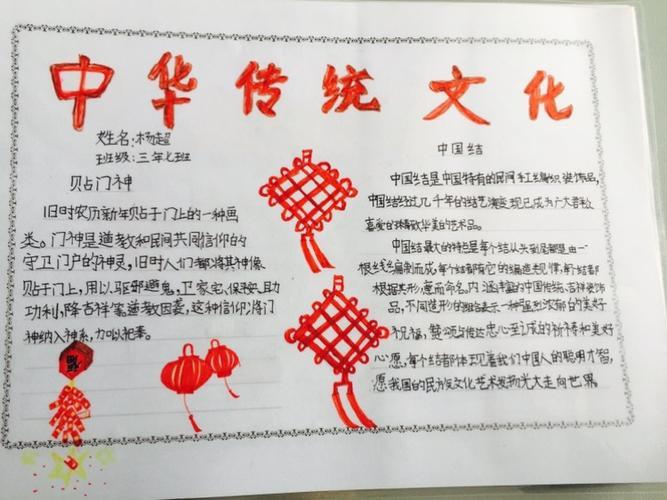 中华传统文化
姓名:杨超
班级:三年七班
贴门神
旧时农历新年贴于门上的一种画
类。门神是道教和民间共同信仰的
守卫门户的神灵,旧时人们都将其神像
贴于门上,用以驱邪避鬼,卫家宅,保平安,且力
功利,降吉祥等,道教因袭,这种信仰,将门
神纳入神系,加以祀奉。
中国结
中国结是中国特有的民间手工编织装饰品,
中国结经过几千年的结艺演变,现已成为广大群众
喜爱的精致华美的艺术品。
中国结最大的特点是每个结从头到尾都是由一
根丝线编制而成,每个结都有它的编造规律,每个结都
根据其形,意而命名,内涵丰富的中国传统吉祥装饰
品,不同造形的结表示一种强烈浓郁的美好
祝福,赞颂与传达忠心至诚的祈祷和美好
心愿,每个结都体现着我们中国人的聪明才智,
愿我国的民族文化艺术发扬光大走向世界
福